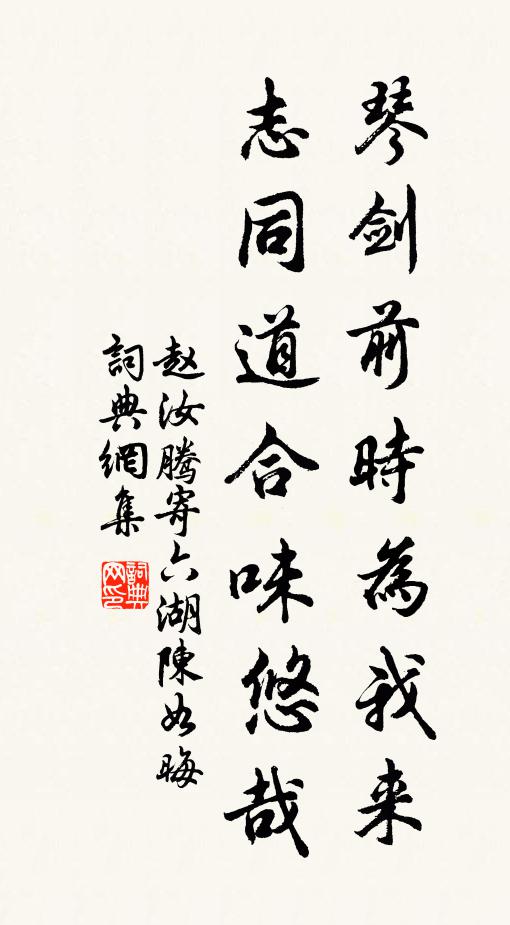 琴剑前時為我来
志同道合味悠哉
赵汝腾寄六湖陳如晦
詞典網集
詞典网印